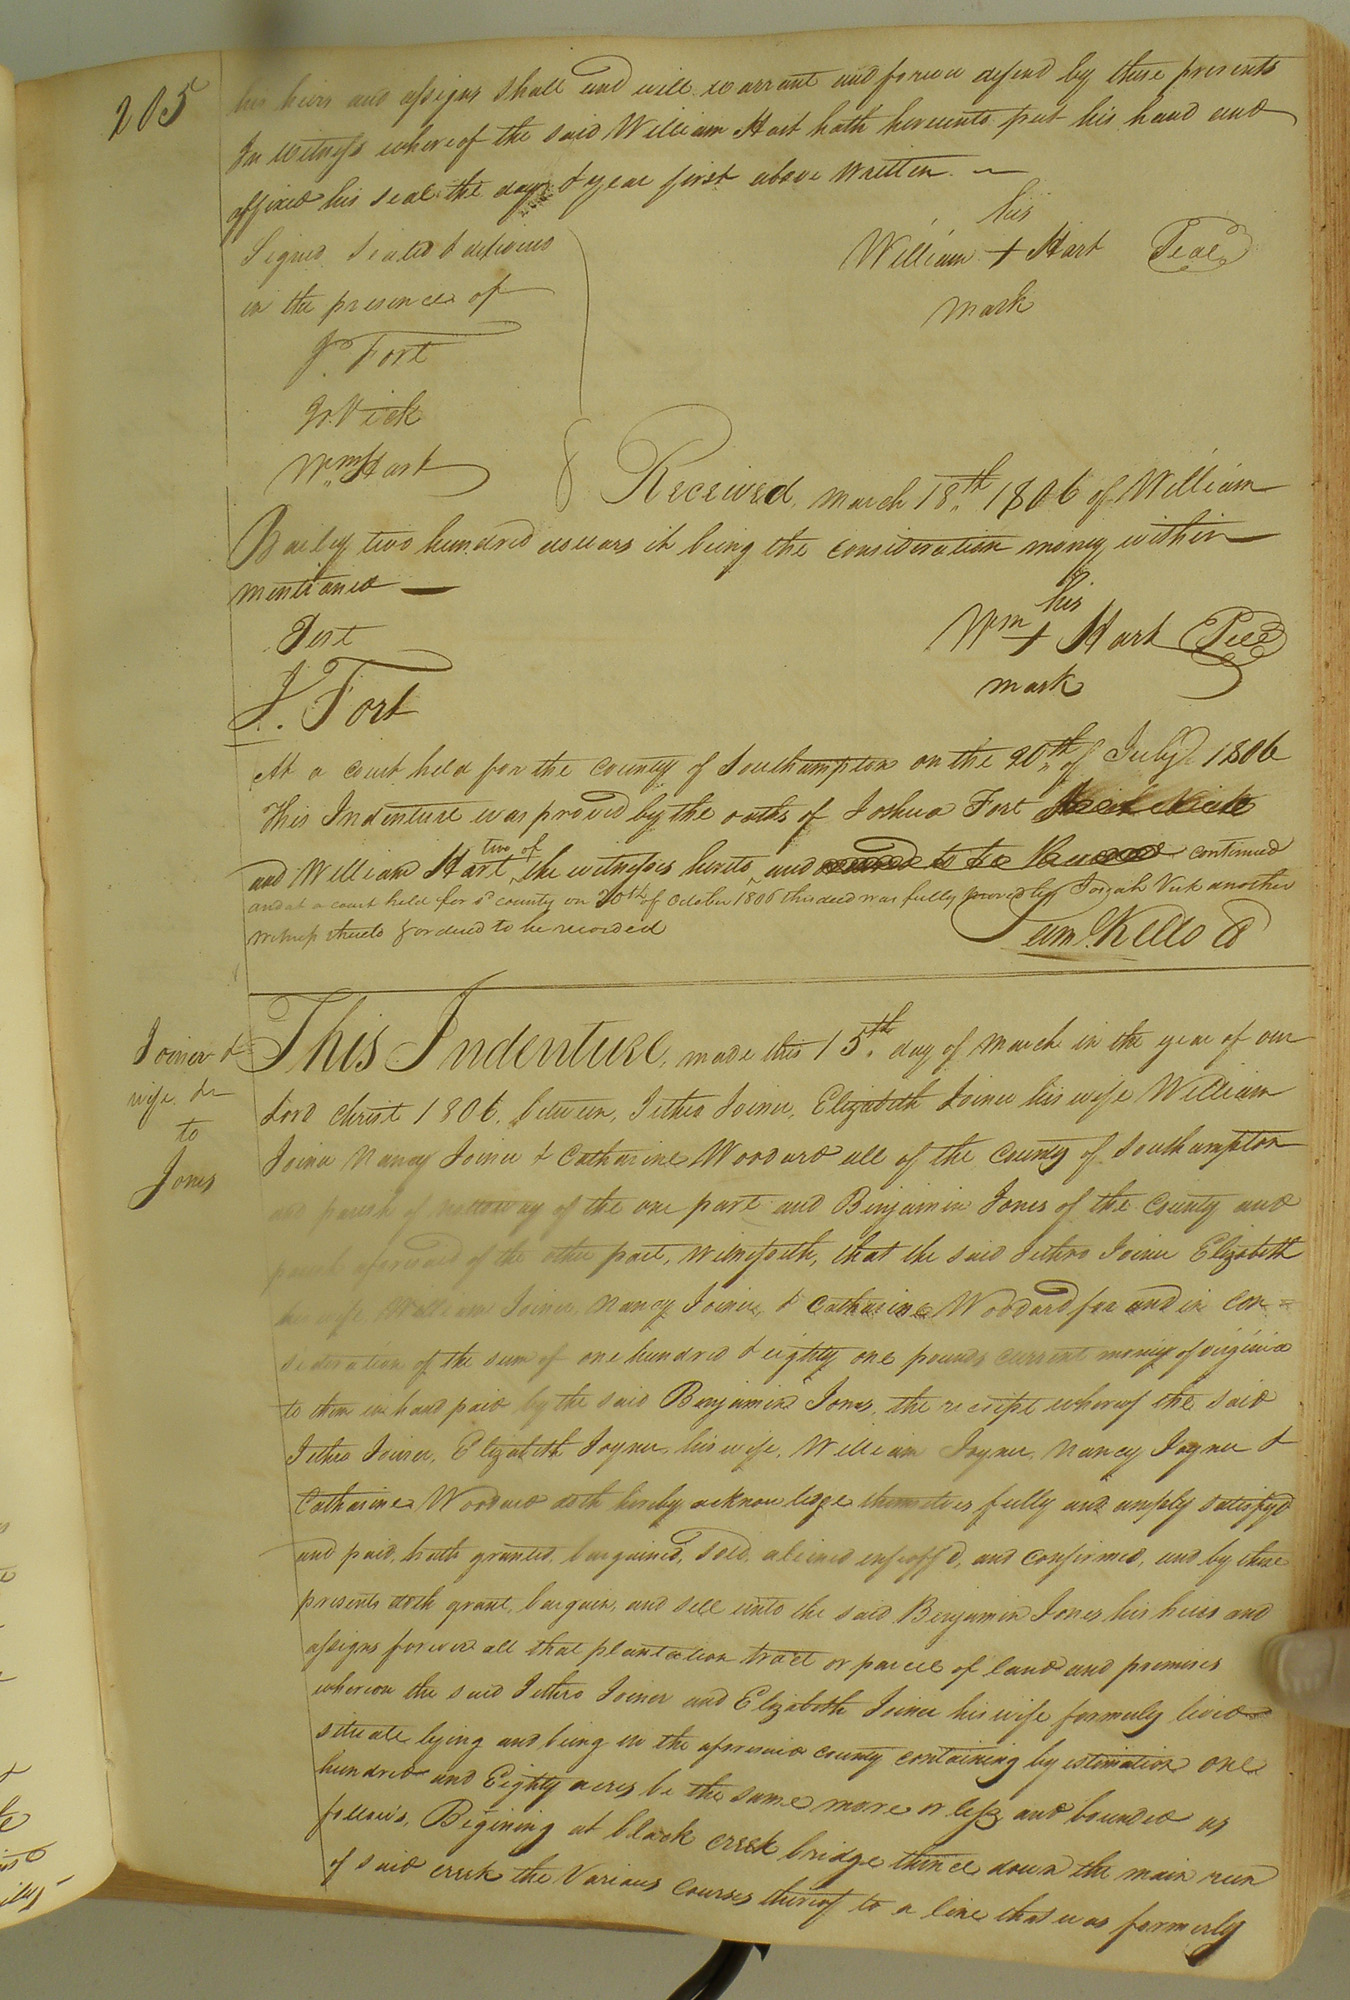 205
his heirs and assigns shall and will warrant and forever defend by these presents
In witness whereof the said William Hart hath hereunto put his hand and
affixed his seal the day & year first above written
Signed Sealed & delivered
in the presence of
his
William + Hart Seal
mark
J. Fort
Jo. Vick
Wm Hart
Received, march 18th 1806 of William
Bailey two hundred dollars it being the consideration money within
mentioned
Test
his
Wm + Hart Seal
mark
J. Fort
At a court held for the county of Southampton on the 20th of July 1806
This Indenture was proved by the oaths of Joshua Fort
and William Hart two of the witnesses hereto and ordered to be Recorded continued
and at a court held for sd county on 20th of October 1806 this deed was fully proved by Josiah Vick another
witness thereto & ordered to be recorded
Sam. Kello C
Joiner &
wife &c
to
Jones
This Indenture, made this 15th day of march in the year of our
Lord christ 1806. between, Jethro Joiner, Elizabeth Joiner his wife William
Joiner Nancy Joiner & Catharine Woodard all of the county of Southampton
and parish of nottoway of the one part and Benjamin Jones of the county and
parish aforesaid of the other part, witnesseth, that the said Jethro Joiner Elizabeth
his wife William Joiner, Nancy Joiner, & Catharine Woodard for and in con=
sideration of the sum of one hundred & eighty one pounds current money of virginia
to them in hand paid by the said Benjamin Jones, the receipt whereof the said
Jethro Joiner, Elizabeth Joyner his wife, William Joyner, Nancy Joyner &
Catharine Woodard doth hereby acknowledge themselves fully and amply satisfyd
and paid, hath granted, bargained, sold, aliened enfeoffd, and confirmed, and by these
presents doth grant, bargain, and sell unto the said Benjamin Jones his heirs and
assigns forever all that plantation tract or parcel of land and premises
whereon the said Jethro Joiner and Elizabeth Joiner his wife formerly lived
situate lying and being in the aforesaid county containing by estimation one
hundred and Eighty acres be the same more or less and bounded as
follows, Begining at black creek bridge thence down the main run
of said creek the Various courses thereof to a line that was formerly